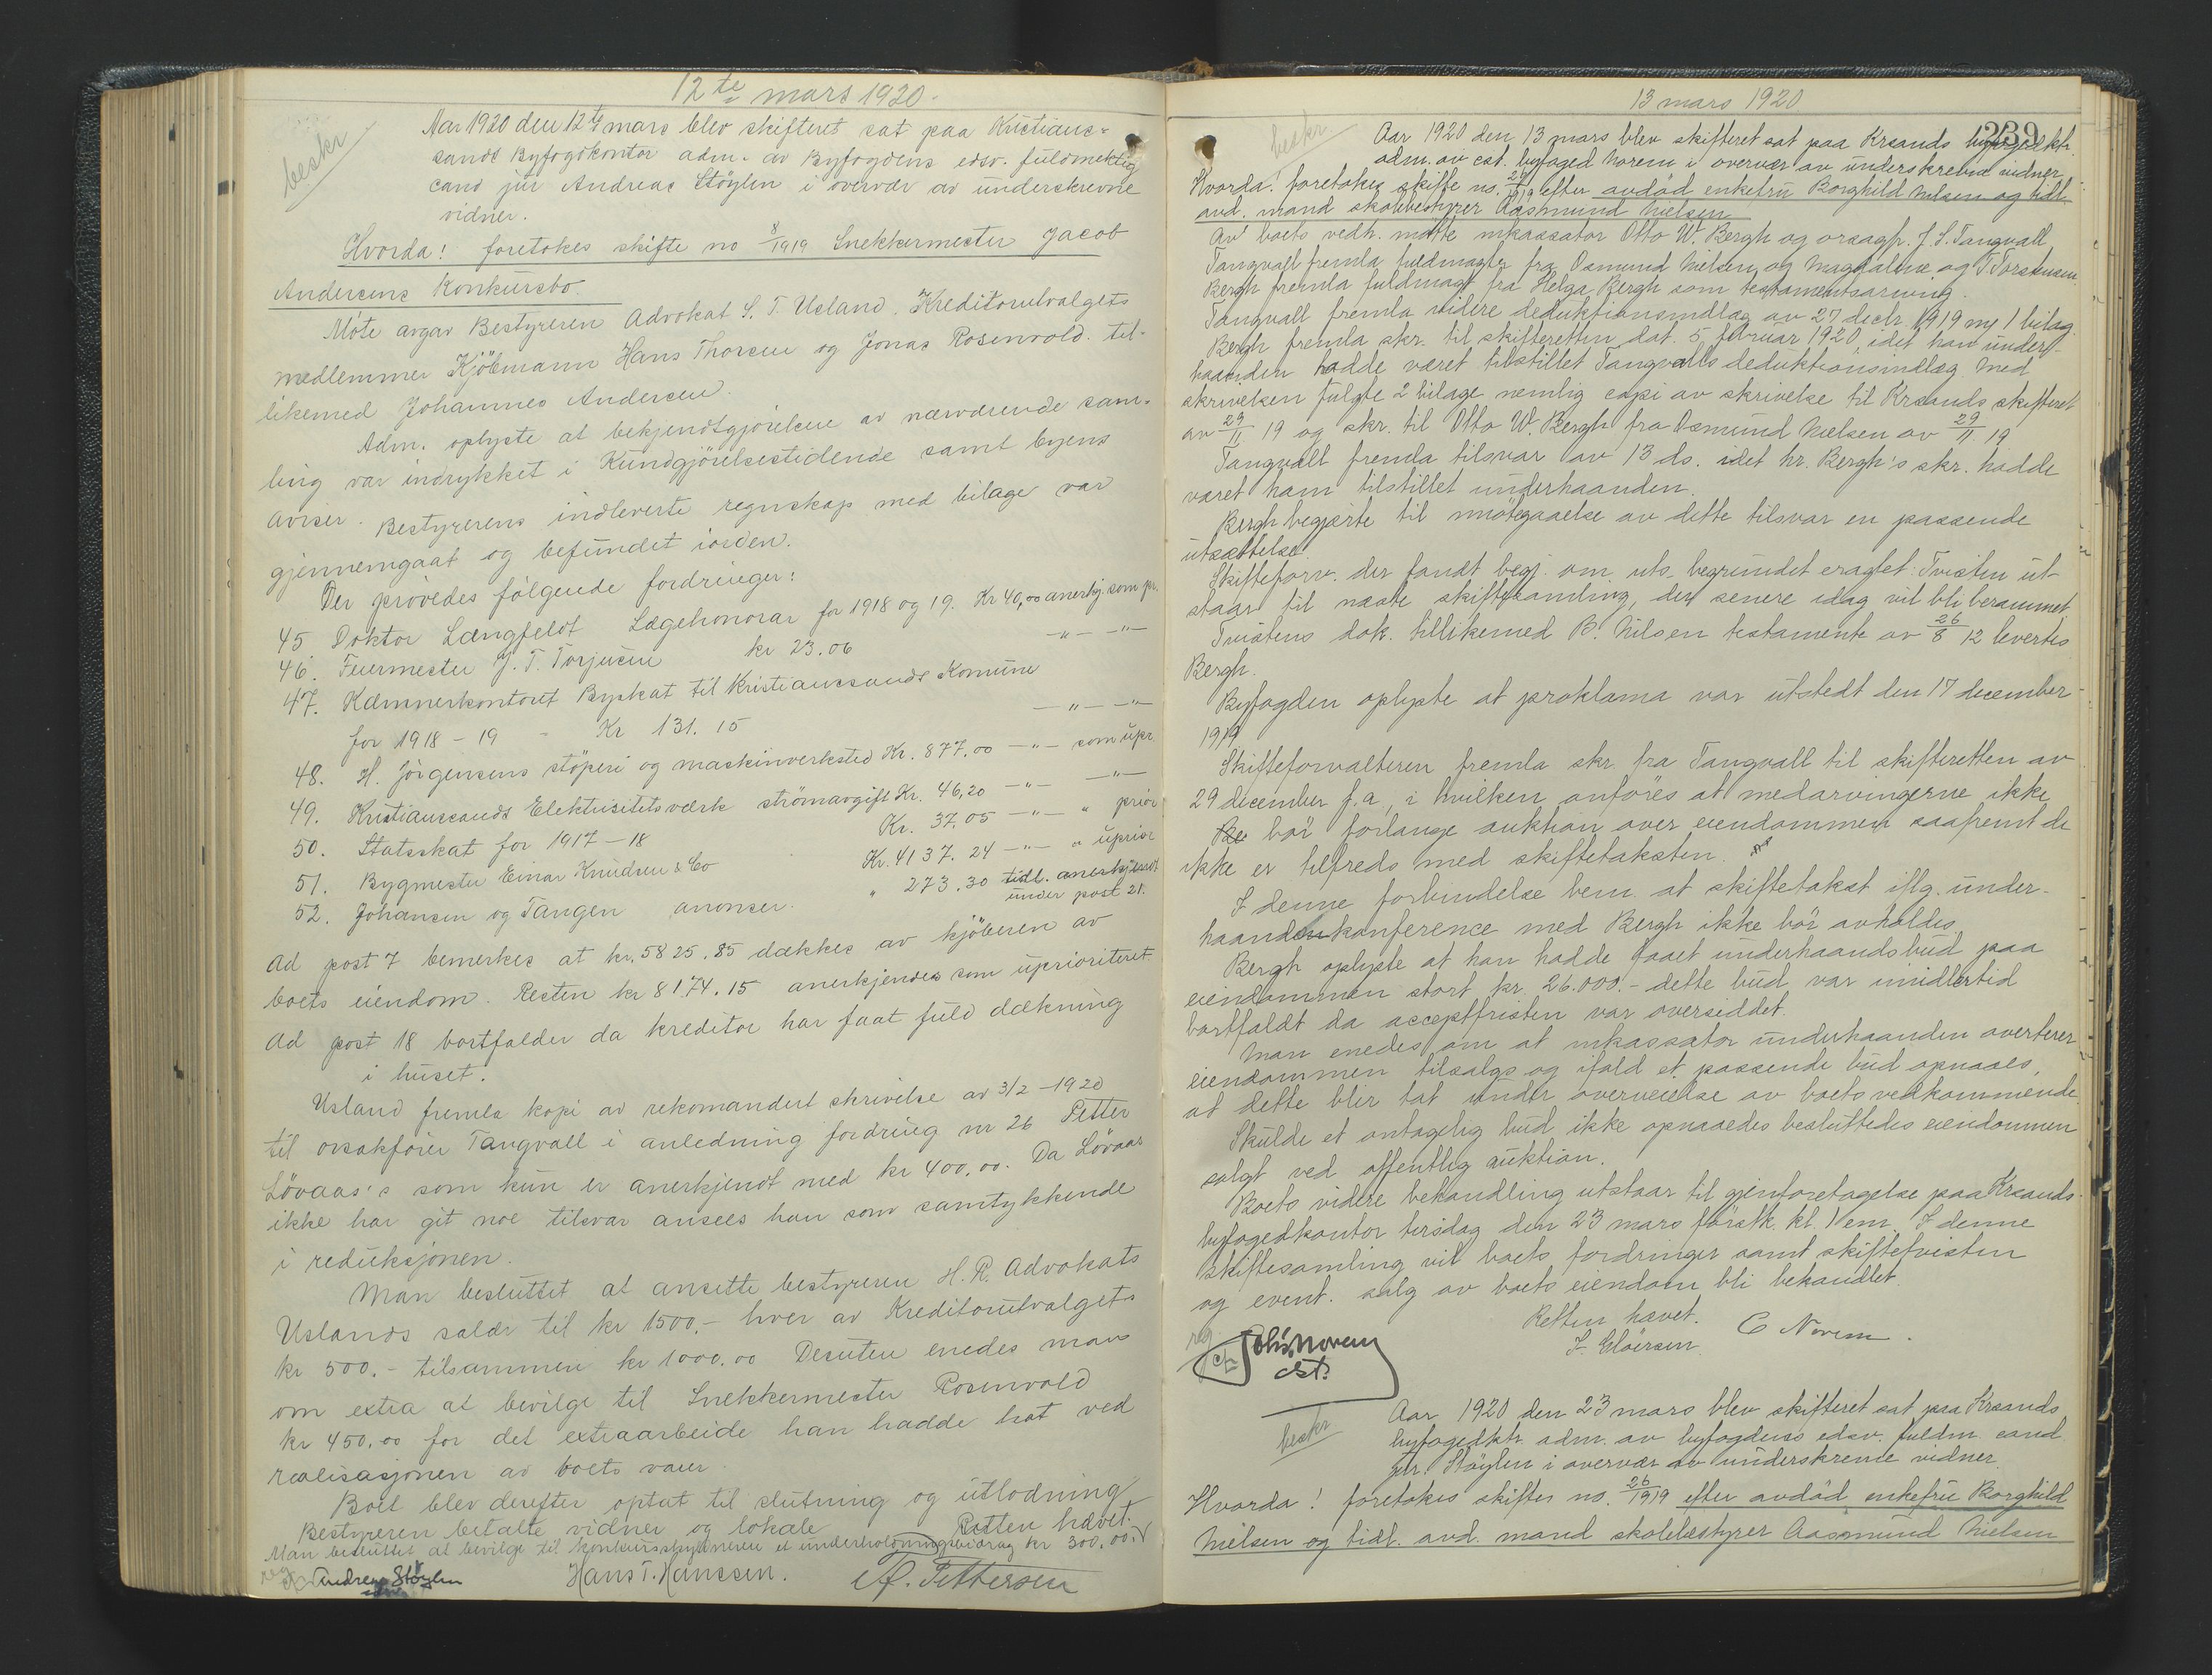 12te mars 1920.
beskr
Aar 1920 den 12te mars blev skifteret sat paa Kristians-
sands Byfogdkontor adm. av Byfogdens edsv. fuldmektig
cand jur Andreas Stöylen i overvær av underskrevne
vidner.
Hvorda! foretokes skifte no 8/1919 Snekkermester Jacob
Andersens Konkursbo.
Møte avgav Bestyreren Advokat S. T. Usland. Kreditorutvalgets
medlemmer Kjöbmann Hans Thorsen og Jonas Rosenvold. til-
likemed Johannes Andersen.
Adm. oplyste at bekjendtgjörelsen av nærværende sam-
ling var indrykket i Kundgjörelsestidende samt byens
aviser. Bestyrerens indleverte regnskap med bilage var
gjennemgaat og befundet iorden.
Der prövedes fölgende fordringer:
45 Doktor Længfeldt Lægehonorar for 1918 og 19. Kr 40,00 anerkj. som pr.
46. Feiermester J. T. Torjusen kr 23.06 — " — — " —
47. Kæmnerkontoret Byskat til Kristianssands Komune
for 1918 - 19 - Kr 131. 15 — " — — " —
48. H. Jörgensens stöperi og maskinverksted Kr. 877,00 — " — som upr.
49. Kristianssands Elektricitetsværk strömavgift Kr. 46,20 — " — — " —
50. Statsskat for 1917 - 18 Kr. 37,05 — " — " prior
51. Bygmester Einar Knudsen & Co Kr. 4137. 24 — " — " uprior
52. Johansen og Tangen anonser. " 273.30 tidl. anerkjendt
under post 21.
Ad post 7 bemerkes at kr. 5825.85 dækkes av kjöberen av
boets eiendom. Resten kr 8174.15 anerkjendes som uprioriteret
Ad post 18 bortfalder da kreditor har faat fuld dækning
i huset.
Usland fremla kopi av rekomandert skrivelse av 3/2 - 1920
til orsakfører Tangvall i anledning fordring nr 26 Petter
Lövaas's som kun er anerkjendt med kr 400,00. Da Lövaas
ikke har git noe tilsvar ansees han som samtykkende
i reduksjonen.
Man besluttet at ansette bestyreren H.R. Advokats
Uslands salær til kr 1500,- hver av Kreditorutvalgets
kr 500.- tilsammen kr 1000.00 Desuten enedes man
om extra at bevilge til Snekkermester Rosenvold
kr 450.00 for det extraarbeide han hadde hat ved
realisasjonen av boets varer.
Boet blev derefter optat til slutning og utlodning
Bestyreren betalte vidner og lokale Retten hævet.
Man besluttet at bevilge til konkursskyldneren et underholdningsbidrag kr 300,00.
Andreas Stöylen Hans T. Hanssen. A. Pettersen
13 mars 1920
239
beskr
Aar 1920 den 13 mars blev skifteret sat paa Krsands byfogedktr.
adm. av cst. byfoged Norem i overvær av underskrevne vidner.
Hvorda! foretokes skifte no. 26/1919 efter avdöd enkefru Borghild Nielsen og tidl.
avd. mand skolebestyrer Aasmund Nielsen
Av boets vedk. møtte inkassator Otto W. Bergh og orsagf. J. S. Tangvall
Tangvall fremla fuldmagter fra Osmund Nielsen og Magdalene og T. Torstensen.
Bergh fremla fuldmagt fra Helga Bergh som testamentsarving.
Tangvall fremla videre deduktionsindlæg av 27 decbr. 1919 m/ 1 bilag.
Bergh fremla skr. til skifteretten dat. 5 februar 1920, idet han under-
haanden hadde været tilstillet Tangvalls deduktionsindlæg. Med
skrivelsen fulgte 2 bilage nemlig copi av skrivelse til Krsands skifteret
av 29/11 19 og skr. til Otto W. Bergh fra Osmund Nielsen av 29/11 19
Tangvall fremla tilsvar av 13 ds. idet hr. Bergh's skr. hadde
været ham tilstillet underhaanden.
Bergh begjærte til imøtegaaelse av dette tilsvar en passende
utsættelse.
Skifteforv. der fandt begj. om uts. begrundet eragtet: Tvisten ut-
staar til næste skiftesamling, der senere idag vil bli berammet.
Tvistens dok. tillikemed B. Nilsen testamente av 26/8 12 levertes
Bergh.
Byfogden oplyste at proklama var utstedt den 17 december
1919
Skifteforvalteren fremla skr. fra Tangvall til skifteretten av
29 december f.a., i hvilken anføres at medarvingerne ikke
bør forlange auktion over eiendommen saafremt de
ikke er tilfreds med skiftetaksten.
I denne forbindelse bem. at skiftetakst iflg. under-
haandenkonference med Bergh ikke bør avholdes.
Bergh oplyste at han hadde faaet underhaandsbud paa
eiendommen stort kr. 26.000.- dette bud var imidlertid
bortfaldt da acceptfristen var oversiddet.
Man enedes om at inkassator underhaanden averterer
eiendommen tilsalgs og ifald et passende bud opnaaes,
at dette blir tat under overveielse av boets vedkommende.
Skulde et antagelig bud ikke opnaaedes besluttedes eiendommen
solgt ved offentlig auktion.
Boets videre behandling utstaar til gjenforetagelse paa Krsands
byfogedkontor tirsdag den 23 mars førstk. kl. 1 em. I denne
skiftesamling vil boets fordringer samt skiftetvisten
og event. salg av boets eiendom bli behandlet.
Retten hævet.
Norem
cst.
C Norem.
beskr
Aar 1920 den 23 mars blev skifteret sat paa Krsands
byfogedktr. adm. av byfogdens edsv. fuldm. cand.
jur. Stöylen i overvær av underskrevne vidner.
Hvorda! foretokes skifte no. 26/1919 efter avdöd enkefru Borghild
Nielsen og tidl. avd. mand skolebestyrer Aasmund Nielsen